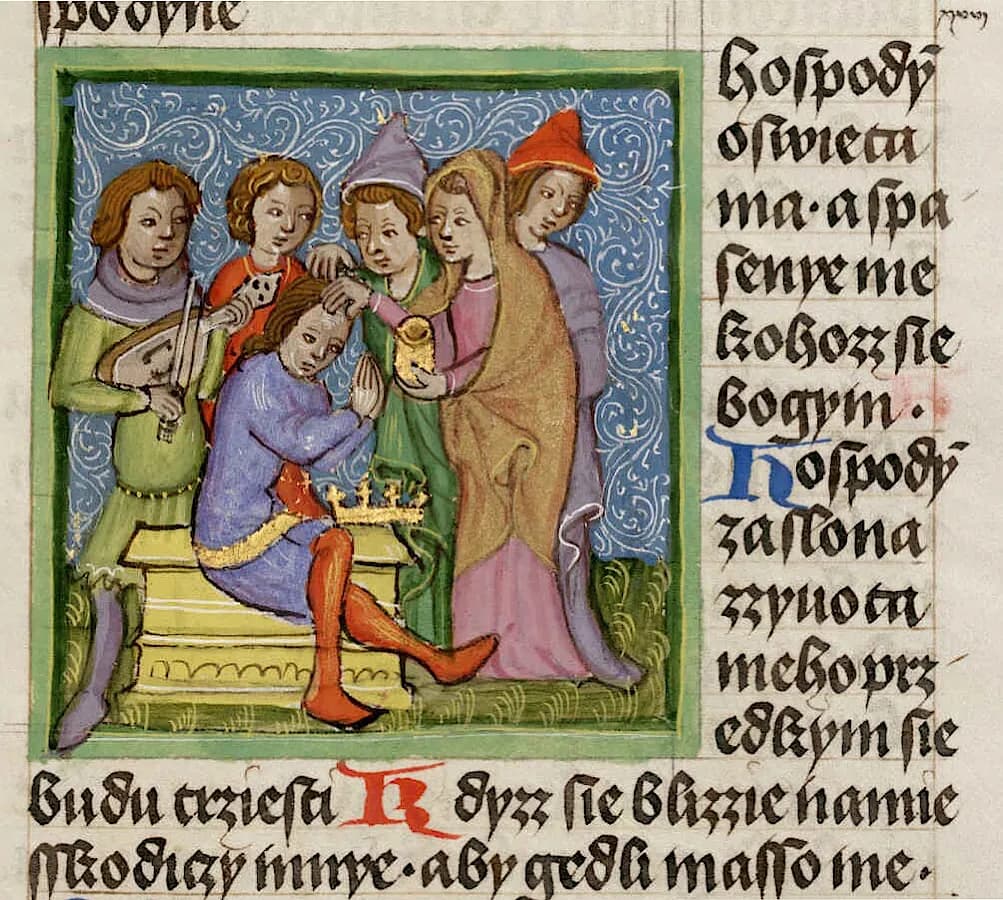 spodyne
hospodȳ
oswieta
ma·aspa
senye me
kohozz sie
bogym·
Hospodȳ
zaslona
zzyuota
meho prz
edkym sie
budu trziesti Kdyzz sie blizzie namie
sskodiczy innye·aby gedli masso me·